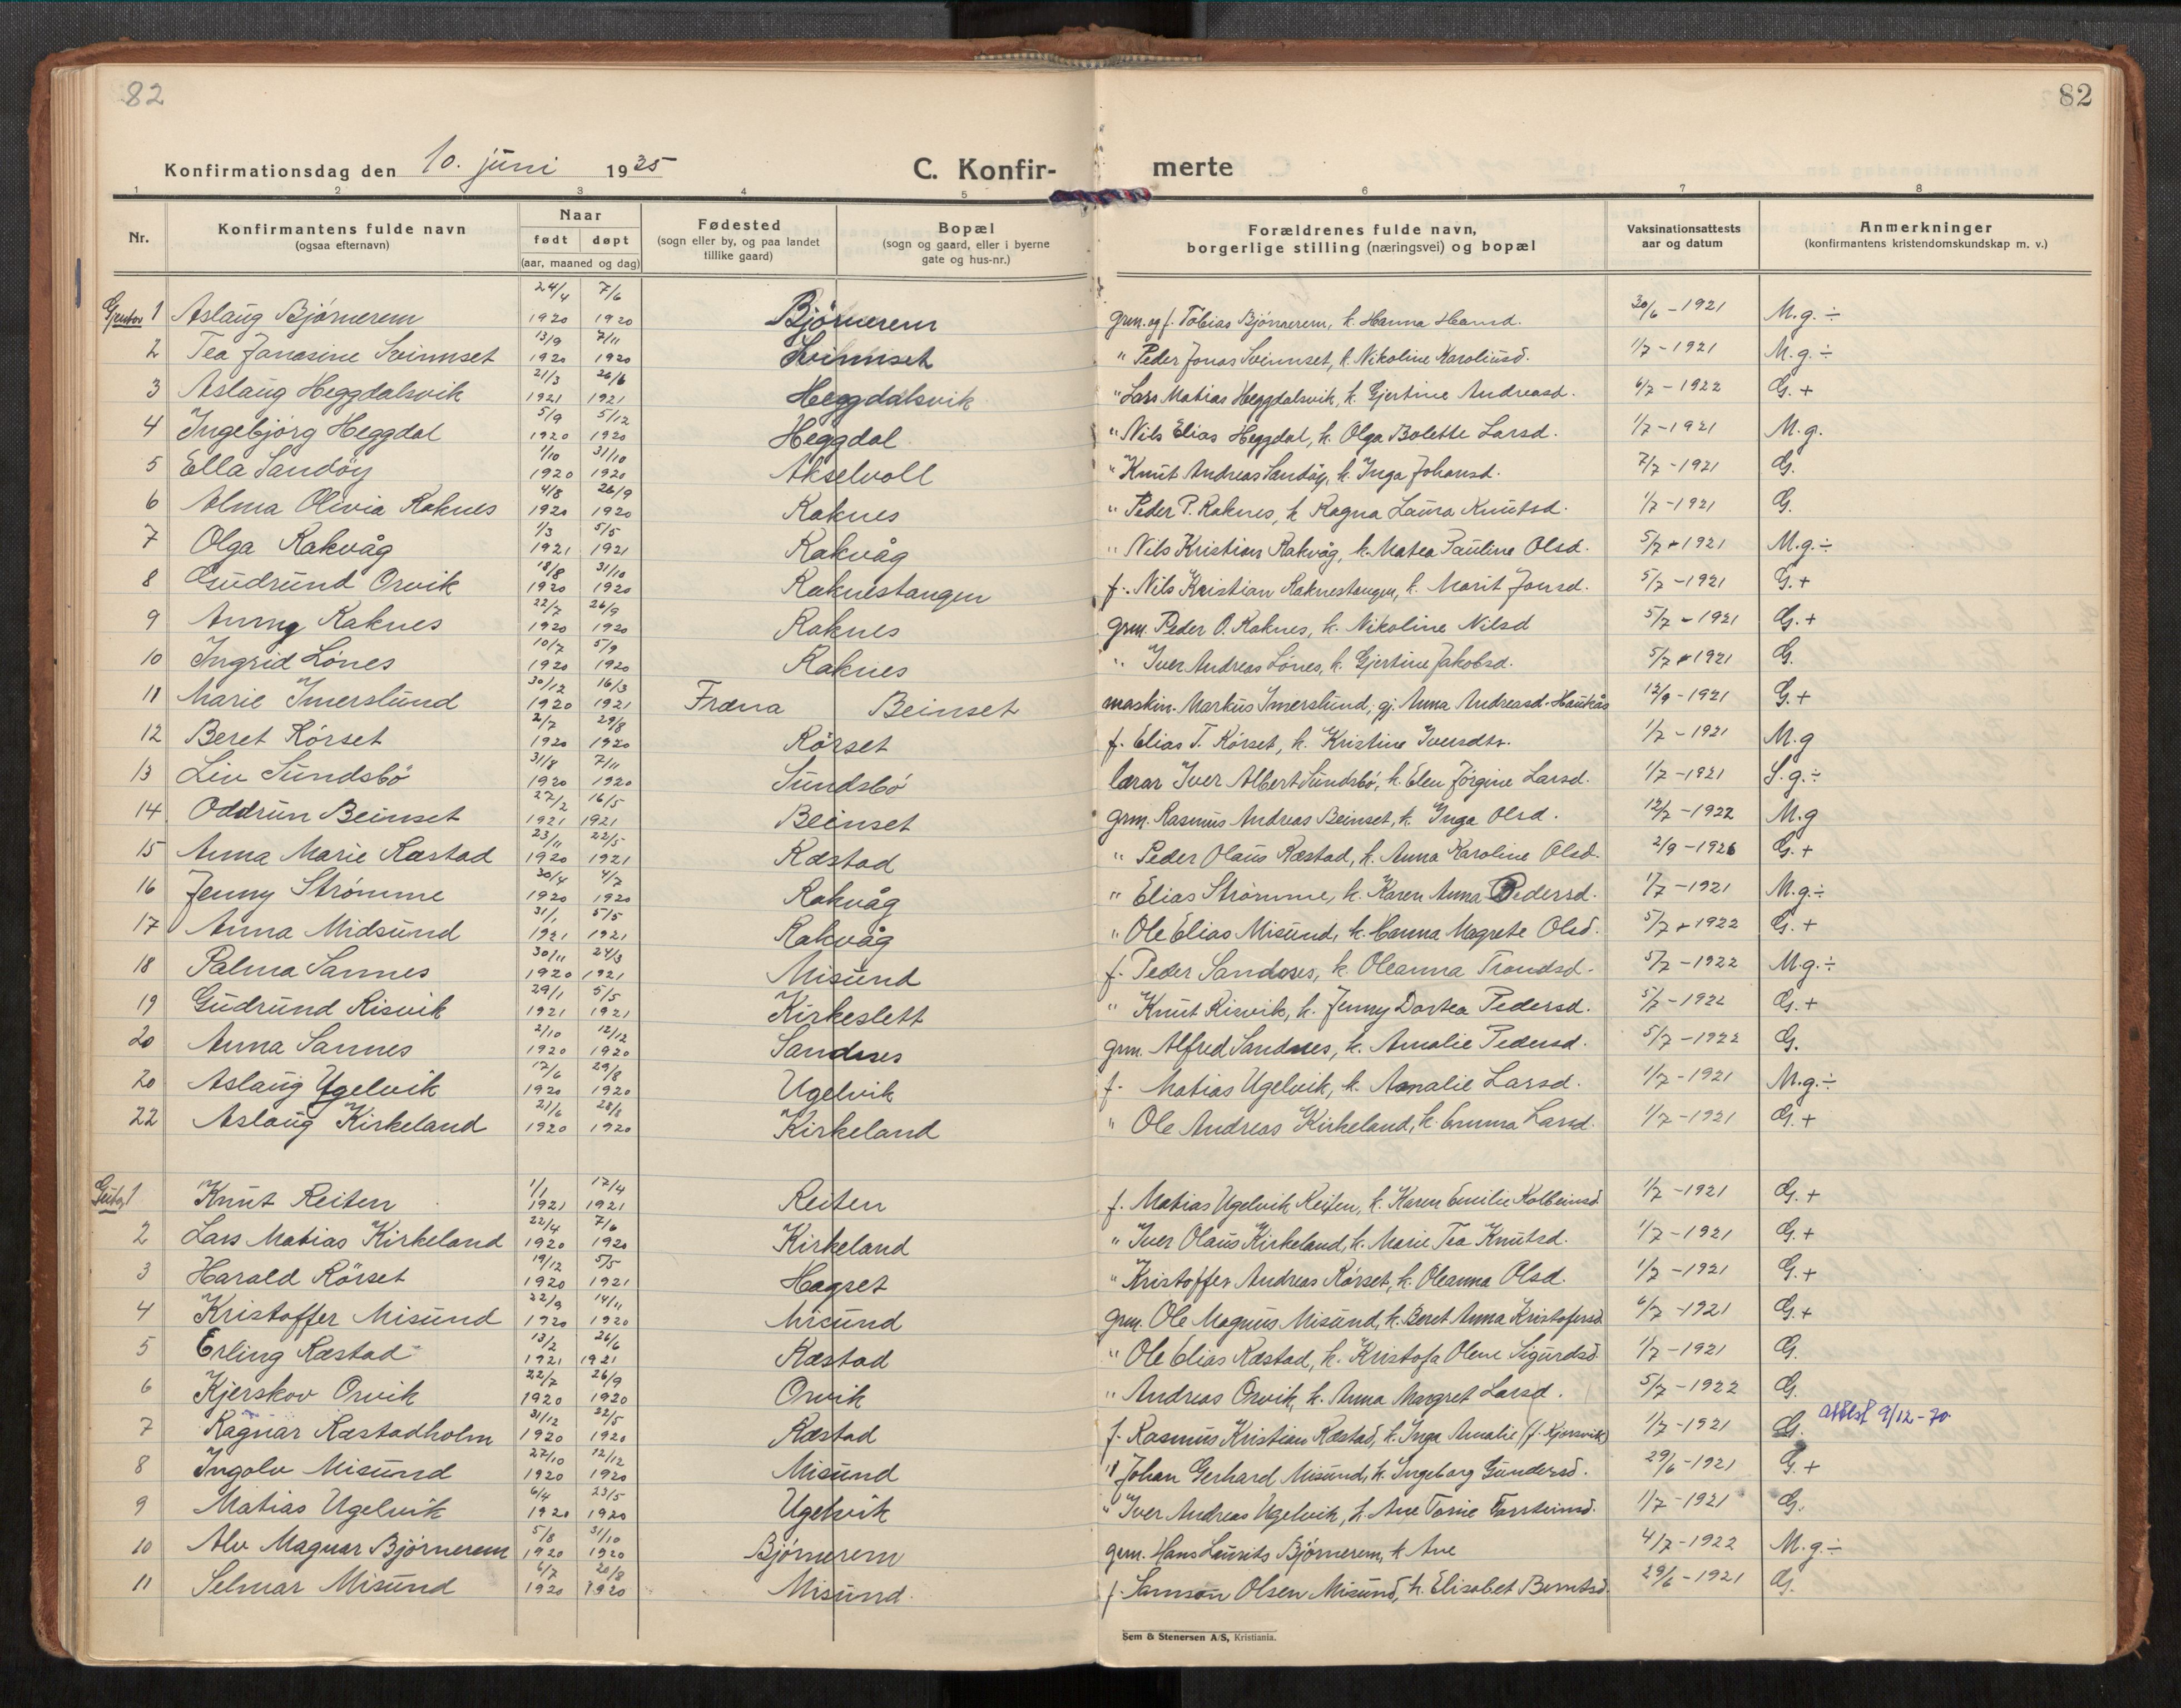 82
82
Konfirmationsdag den 10. juni 1935
C. Konfir-merte
1 2 3 4 5 6 7 8
Nr. | Konfirmantens fulde navn (ogsaa efternavn) | Naar født døpt (aar, maaned og dag) | Fødested (sogn eller by, og paa landet tillike gaard) | Bopæl (sogn og gaard, eller i byerne gate og hus-nr.) | Forældrenes fulde navn, borgerlige stilling (næringsvei) og bopæl | Vaksinationsattests aar og datum | Anmerkninger (konfirmantens kristendomskundskap m. v.)
1 Aslaug Bjørnerem 24/4 1920 7/6 1920 Bjørnerem grm. og f. Tobias Bjørnerem, k. Hanna Hansd. 30/6 - 1921 M.g. ÷
2 Tea Janasine Svinnset 13/9 1920 7/11 1920 Svinnset " Peder Jonas Svinnset, k. Nikoline Karolinusd. 1/7 - 1921 M.g. ÷
3 Aslaug Heggdalsvik 21/3 1921 26/6 1921 Heggdalsvik " Lars Matias Heggdalsvik, k. Gjertine Andreasd. 6/7 - 1922 G. +
4 Ingebjørg Heggdal 5/9 1920 5/12 1920 Heggdal " Nils Elias Heggdal, k. Olga Bolette Larsd. 1/7 - 1921 M.g.
5 Ella Sandøy 1/10 1920 31/10 1920 Akselvoll " Knut Andreas Sandøy, k. Inga Johansd. 7/7 - 1921 G.
6 Alma Olivia Raknes 4/8 1920 26/9 1920 Raknes " Peder P. Raknes, k. Ragna Laura Knutsd. 1/7 - 1921 G.
7 Olga Rakvåg 1/3 1921 5/5 1921 Rakvåg " Nils Kristian Rakvåg, k. Matea Pauline Olsd. 5/7 - 1921 M.g. ÷
8 Gudrund Orvik 18/8 1920 31/10 1920 Raknestangen f. Nils Kristian Raknestangen, k. Marit Jonsd. 5/7 - 1921 G. +
9 Anny Raknes 22/7 1920 26/9 1920 Raknes grm. Peder O. Raknes, k. Nikoline Nilsd 5/7 - 1921 G. +
10 Ingrid Lønes 10/7 1920 5/9 1920 Raknes " Iver Andreas Lønes, k. Gjertine Jakobsd. 5/7 - 1921 G.
11 Marie Imerslund 30/12 1920 16/3 1921 Fræna Beinset maskin. Markus Imerslund, gj. Anna Andreasd. Haukås 12/9 - 1921 G +
12 Beret Rørset 2/7 1920 29/8 1920 Rørset f. Elias T. Rørset, k. Kristine Iversdtr. 1/7 - 1921 M.g
13 Liv Sundsbø 31/8 1920 7/11 1920 Sundsbø lærar Iver Albert Sundsbø, k. Elen Jørgine Larsd. 1/7 - 1921 S.g. ÷
14 Oddrun Beinset 27/2 1921 16/5 1921 Beinset grm. Rasmus Andreas Beinset, k. Inga Olsd. 12/7 - 1922 M.g
15 Anna Marie Ræstad 23/11 1920 22/5 1921 Ræstad " Peder Olaus Ræstad, k. Anna Karoline Olsd. 2/9 - 1926 G. +
16 Jenny Strømme 30/4 1920 4/7 1920 Rakvåg " Elias Strømme, k. Karen Anna Pedersd. 1/7 - 1921 M.g. ÷
17 Anna Midsund 31/1 1921 5/5 1921 Rakvåg " Ole Elias Misund, k. Hanna Magrete Olsd. 5/7 - 1922 G. +
18 Palma Sannes 30/11 1920 24/3 1921 Misund f. Peder Sandnes, k. Oleanna Trondsd. 5/7 - 1922 M.g. ÷
19 Gudrund Risvik 29/1 1921 5/5 1921 Kirkeslett " Knut Risvik, k. Jenny Dortea Pedersd. 5/7 - 1922 G. +
20 Anna Sannes 2/10 1920 12/12 1920 Sandnes grm. Alfred Sandnes, k. Amalie Pedersd. 5/7 - 1922 G.
20 Aslaug Ugelvik 17/6 1920 29/8 1920 Ugelvik f. Matias Ugelvik, k. Amalie Larsd. 1/7 - 1921 M.g. ÷
22 Aslaug Kirkeland 21/6 1920 28/8 1920 Kirkeland " Ole Andreas Kirkeland, k. Emma Larsd. 1/7 - 1921 G. +
1 Knut Reiten 1/1 1921 17/4 1921 Reiten f. Matias Ugelvik Reiten, k. Karen Emilie Kolbeinsd. 1/7 - 1921 G. +
2 Lars Matias Kirkeland 22/4 1920 7/6 1920 Kirkeland " Iver Olaus Kirkeland, k. Marie Tea Knutsd. 1/7 - 1921 G. +
3 Harald Rørset 19/12 1920 5/5 1921 Hagset " Kristoffer Andreas Rørset, k. Oleanna Olsd. 1/7 - 1921 G. +
4 Kristoffer Misund 22/9 1920 14/11 1920 Misund grm. Ole Magnus Misund, k. Beret Anna Kristofersd. 6/7 - 1921 G. +
5 Erling Ræstad 13/2 1921 26/6 1921 Ræstad " Ole Elias Ræstad, k. Kristofa Olene Sigurdsd. 1/7 - 1921 G.
6 Kjerskov Orvik 22/7 1920 26/9 1920 Orvik " Andreas Orvik, k. Anna Margret Larsd. 5/7 - 1922 G.
7 Ragnar Ræstadholm 31/12 1920 22/5 1920 Ræstad f. Rasmus Kristian Ræstad, k. Inga Amalie (f. Kjørsvik) 1/7 - 1921 G. 9/12-70
8 Ingolv Misund 27/10 1920 12/12 1920 Misund " Johan Gerhard Misund, k. Ingeborg Gundersd. 29/6 - 1921 G. +
9 Matias Ugelvik 6/4 1920 23/5 1920 Ugelvik " Iver Andreas Ugelvik, k. Ane 1/7 - 1921 G.
10 Alv Magnar Bjørnerem 5/8 1920 31/10 1920 Bjørnerem grm. Hans Laurits Bjørnerem, k. Ane 4/7 - 1922 M.g. ÷
11 Selmar Misund 6/7 1920 1920 Misund. f. Samson Olsen Misund, k. Elisabet Berntsd. 29/6 - 1921 G.
Sem & Stenersen A/S, Kristiania.